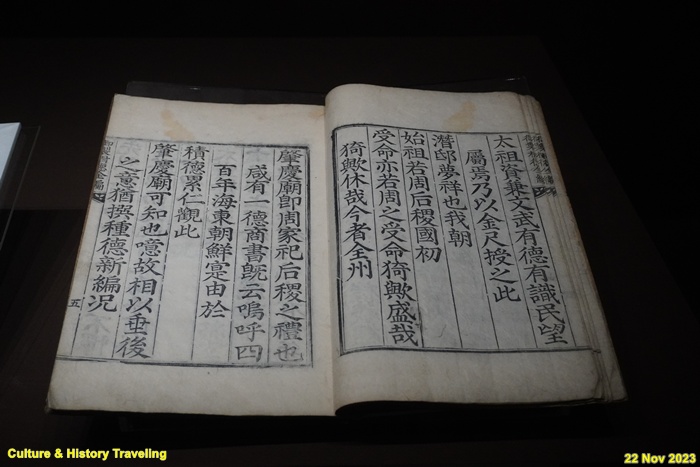 太祖資兼文武有德有識民望
屬焉乃以金尺授之此
潛邸夢祥也我朝
始祖若周后稷國初
受命亦若周之受命猗歟盛哉
猗歟休哉今者全州
肇慶廟卽周家祀后稷之禮也
咸有一德商書旣云嗚呼四
百年海東朝鮮寔由於
積德累仁觀此
肇慶廟可知也噫故相以垂後
之意猶撰種德新編况
五
Culture & History Traveling
22 Nov 2023